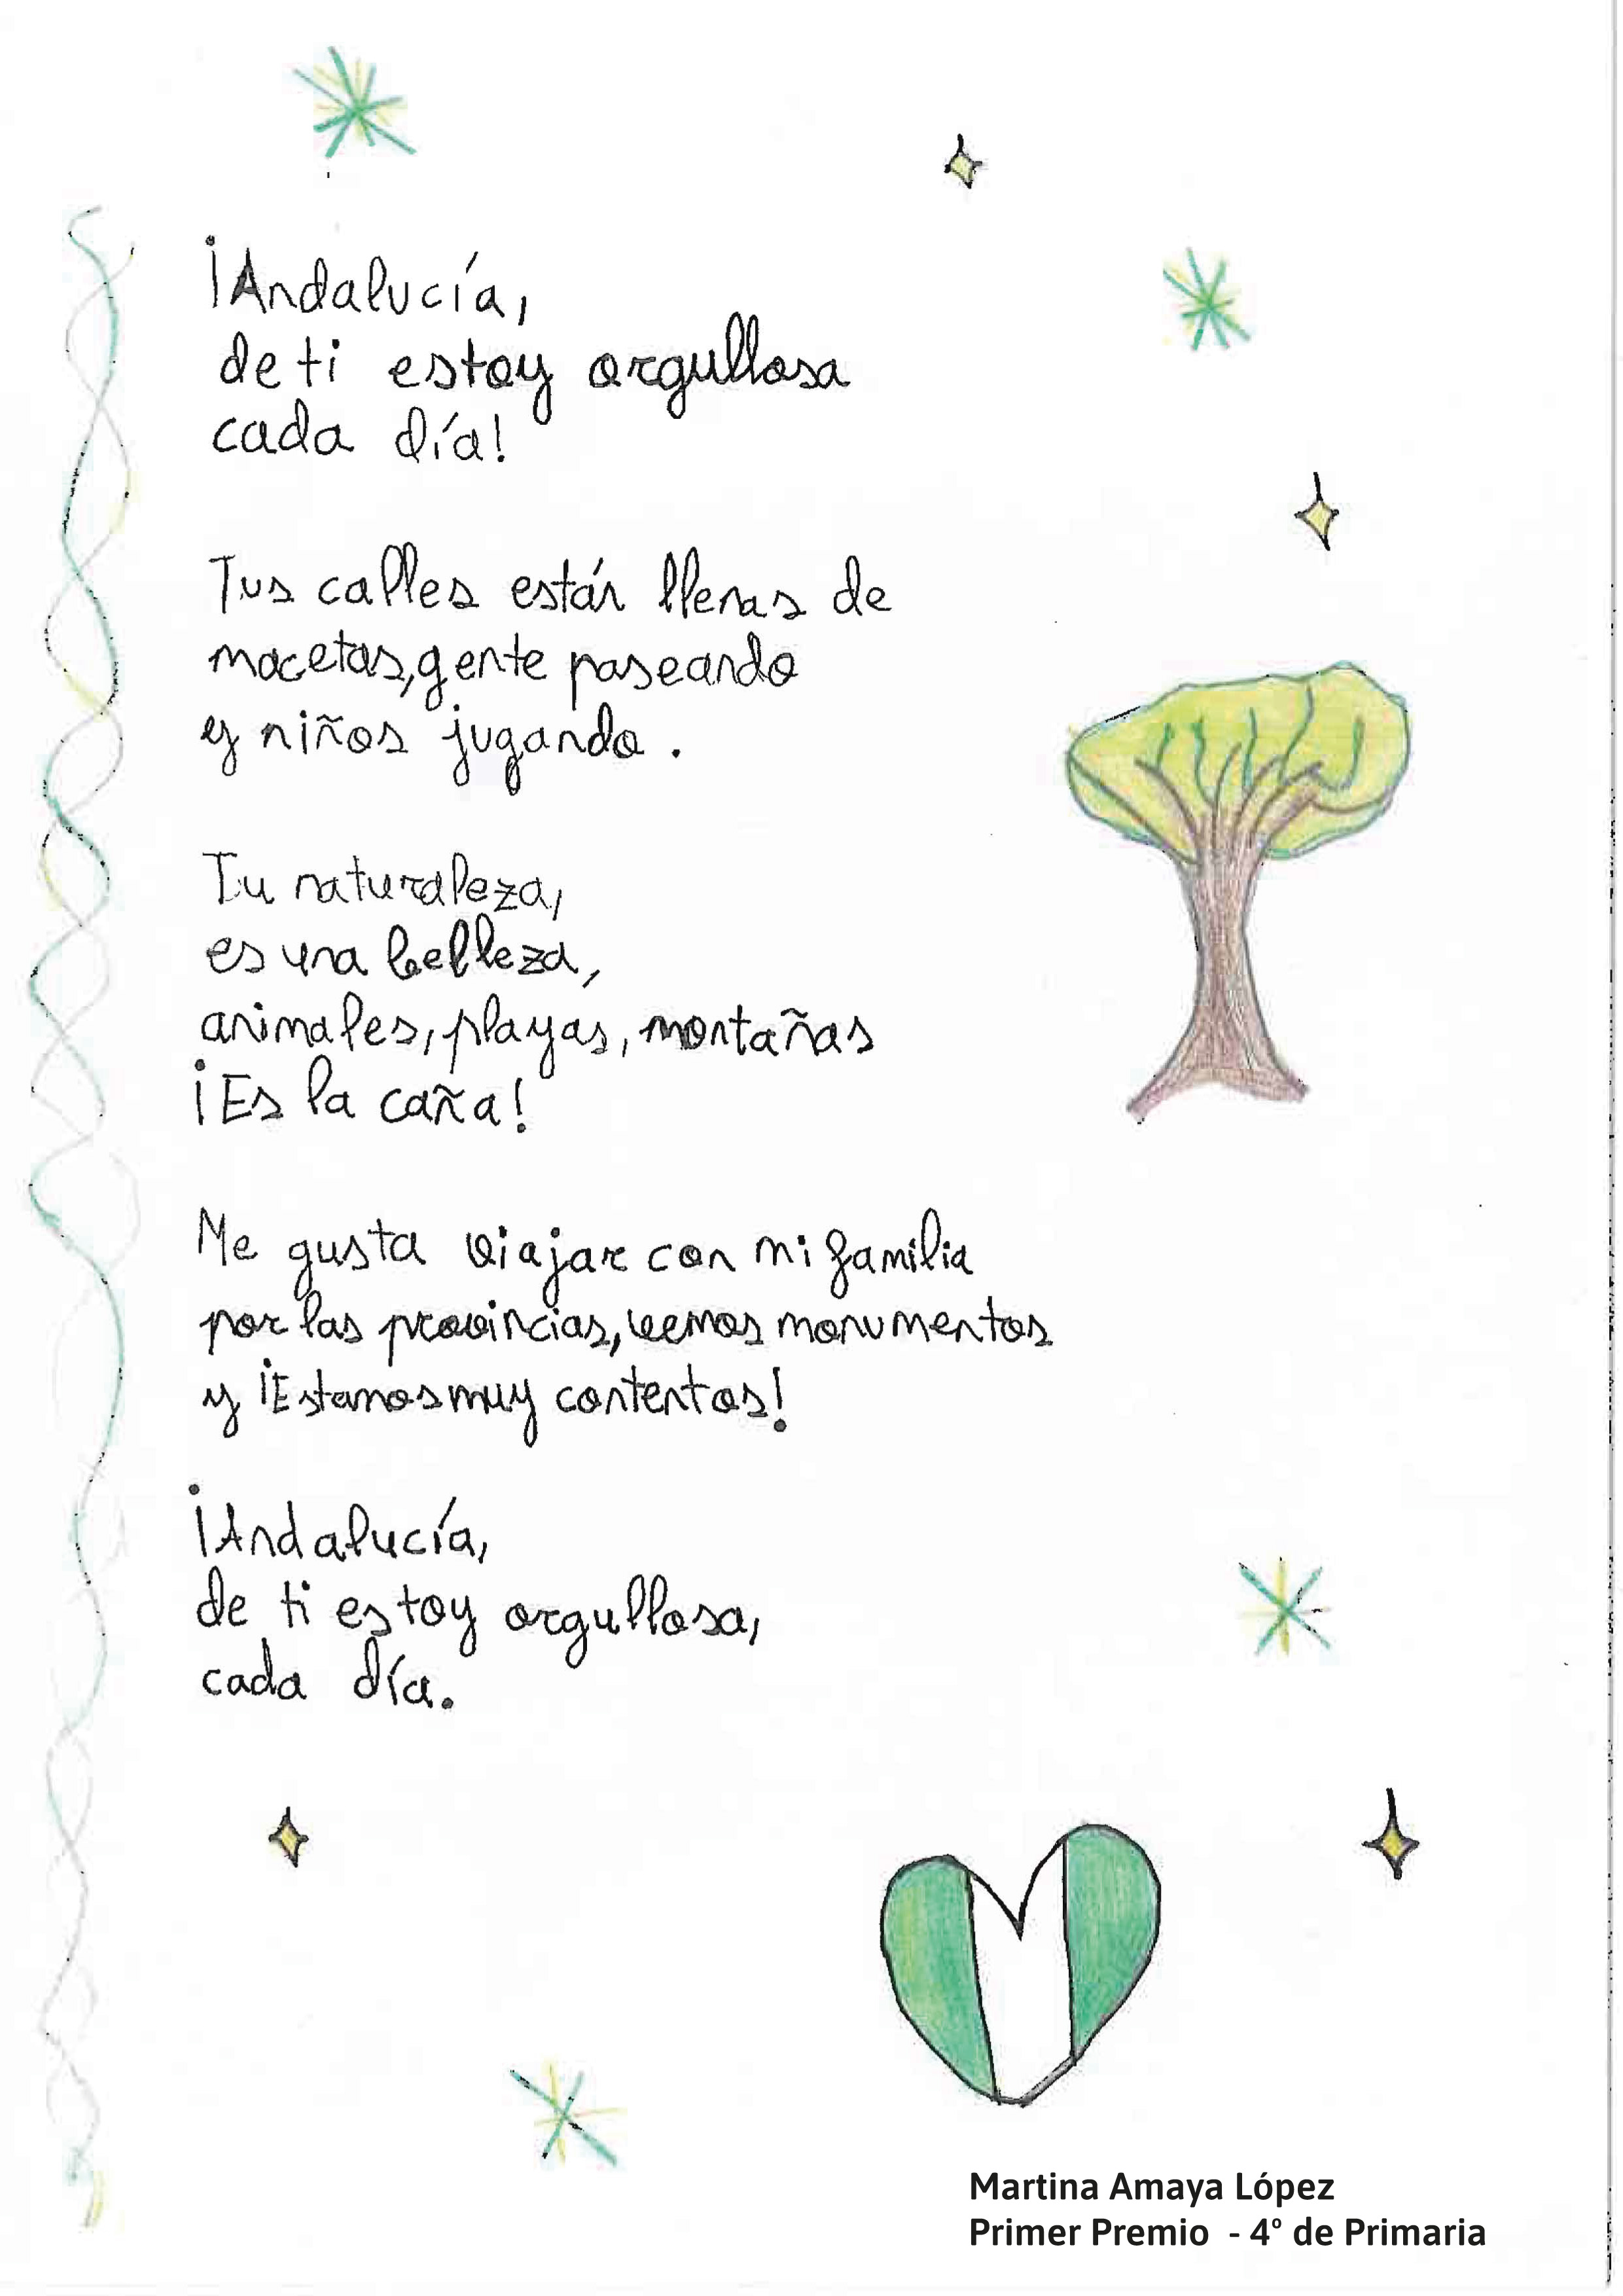 ¡Andalucía,
de ti estoy orgullosa
cada día!
Tus calles están llenas de
macetas, gente paseando
y niños jugando.
Tu naturaleza,
es una belleza,
animales, playas, montañas
¡Es la caña!
Me gusta viajar con mi familia
por las provincias, vemos monumentos
y ¡Estamos muy contentos!
¡Andalucía,
de ti estoy orgullosa,
cada día.
Martina Amaya López
Primer Premio - 4º de Primaria